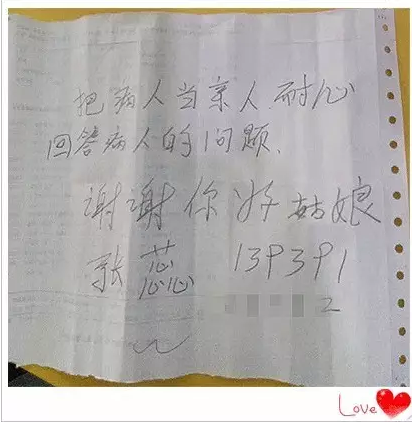 把病人当亲人耐心
回答病人的问题、
谢谢你好姑娘
张蕊 139391
2
Love